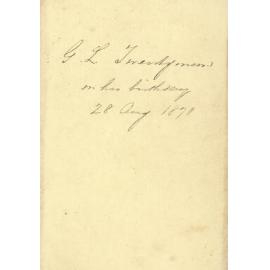 G L Twentyman
on his birthday
28 Aug 1878